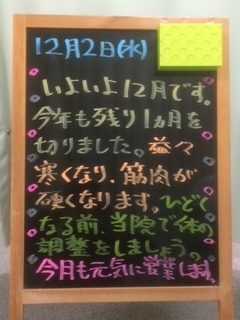 12月2日(水)
いよいよ12月です。
今年も残り1ヵ月を
切りました。益々
寒くなり、筋肉が
硬くなります。ひどく
なる前、当院で体の
調整をしましょう。
今月も元気に営業します。